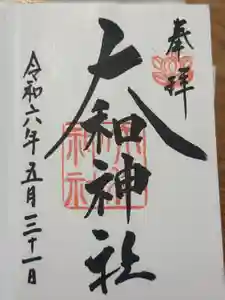 奉拝
大和神社
令和六年五月三十一日